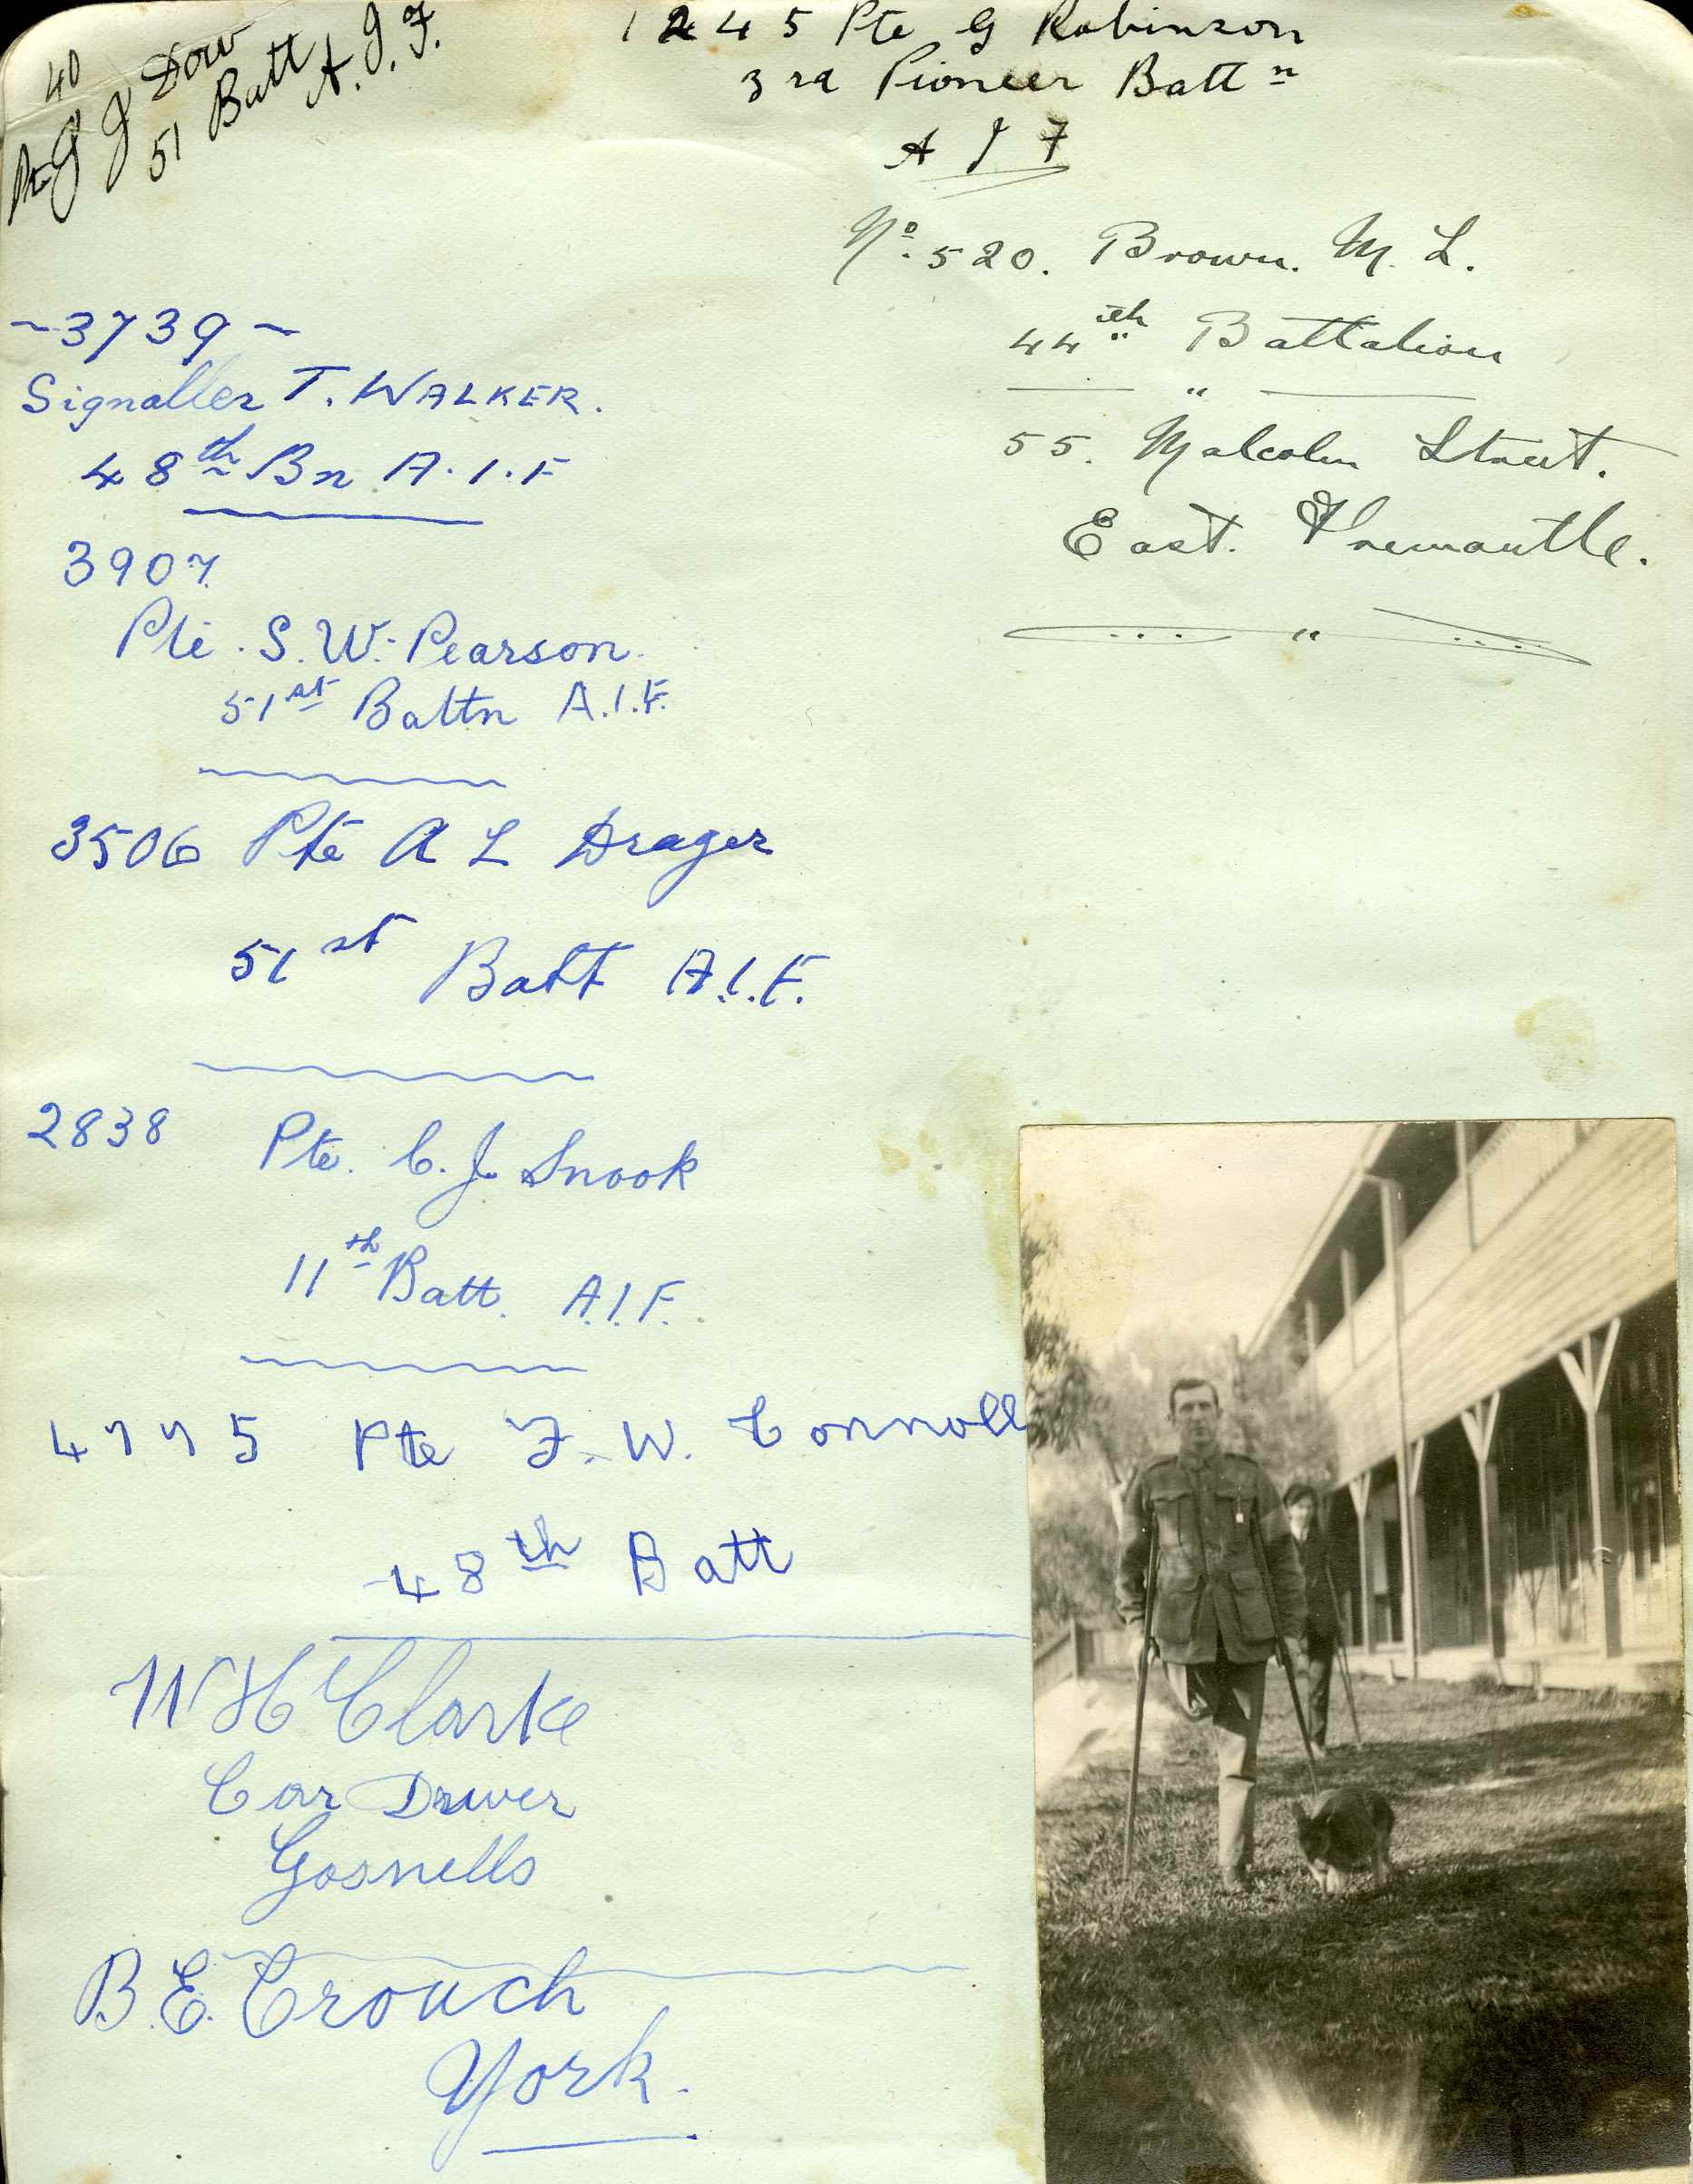 40
Pte G J Dow
51 Batt
A.I.F.
1245 Pte G Robinson
3rd Pioneer Battn
A I F
No. 520. Brown. M. L.
44th Battalion
55. Malcolm Street.
East. Fremantle.
~3739~
Signaller T. WALKER.
48th Bn A.I.F
3907
Pte. S. W. Pearson.
51st Battn A.I.F.
3506 Pte A L Drager
51st Batt A.I.F.
2838 Pte. C. J. Snook
11th Batt. A.I.F.
4775 Pte F. W. Connoll
48th Batt
W H Clarke
Car Driver
Gosnells
B. E. Crouch
York.